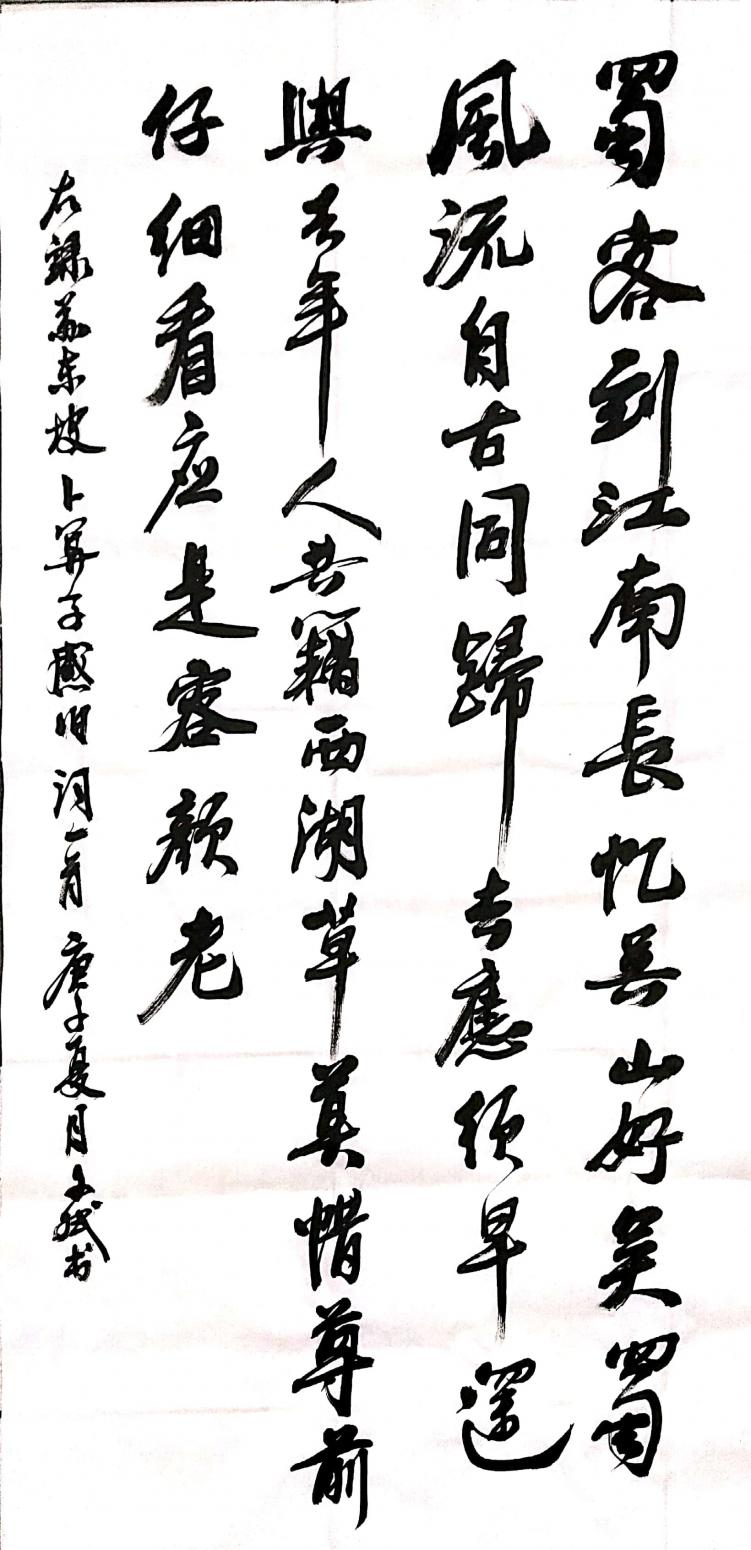 蜀客到江南長忆吴山好吴蜀
風流自古同歸去應须早還
與去年人共藉西湖草莫惜尊前
仔细看应是容颜老
右録苏东坡卜算子感旧词一首 庚子夏月 书